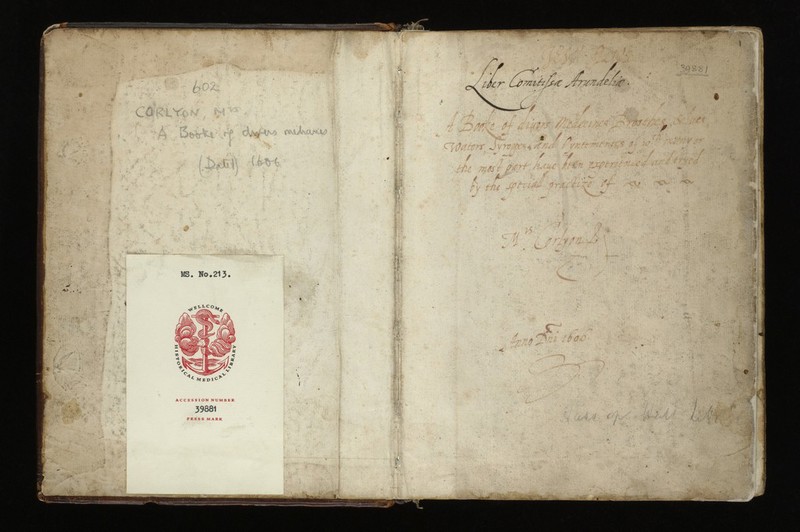 602
CORLYON Mrs
A Booke of divers medicines
(Dated) 1606
MS. No.213.
WELLCOME
HISTORICAL MEDICAL LIBRARY
ACCESSION NUMBER
39881
PRESS MARK
1
39881
Liber Comitissæ Arundeliæ.
A Booke of divers Medecines, Broothes, Salves,
Waters, Syroppes and Oyntementes of wch many or
the most part have been experienced and tryed
by the speciall practize of
Mrs Corlyon
Anno Dni 1606